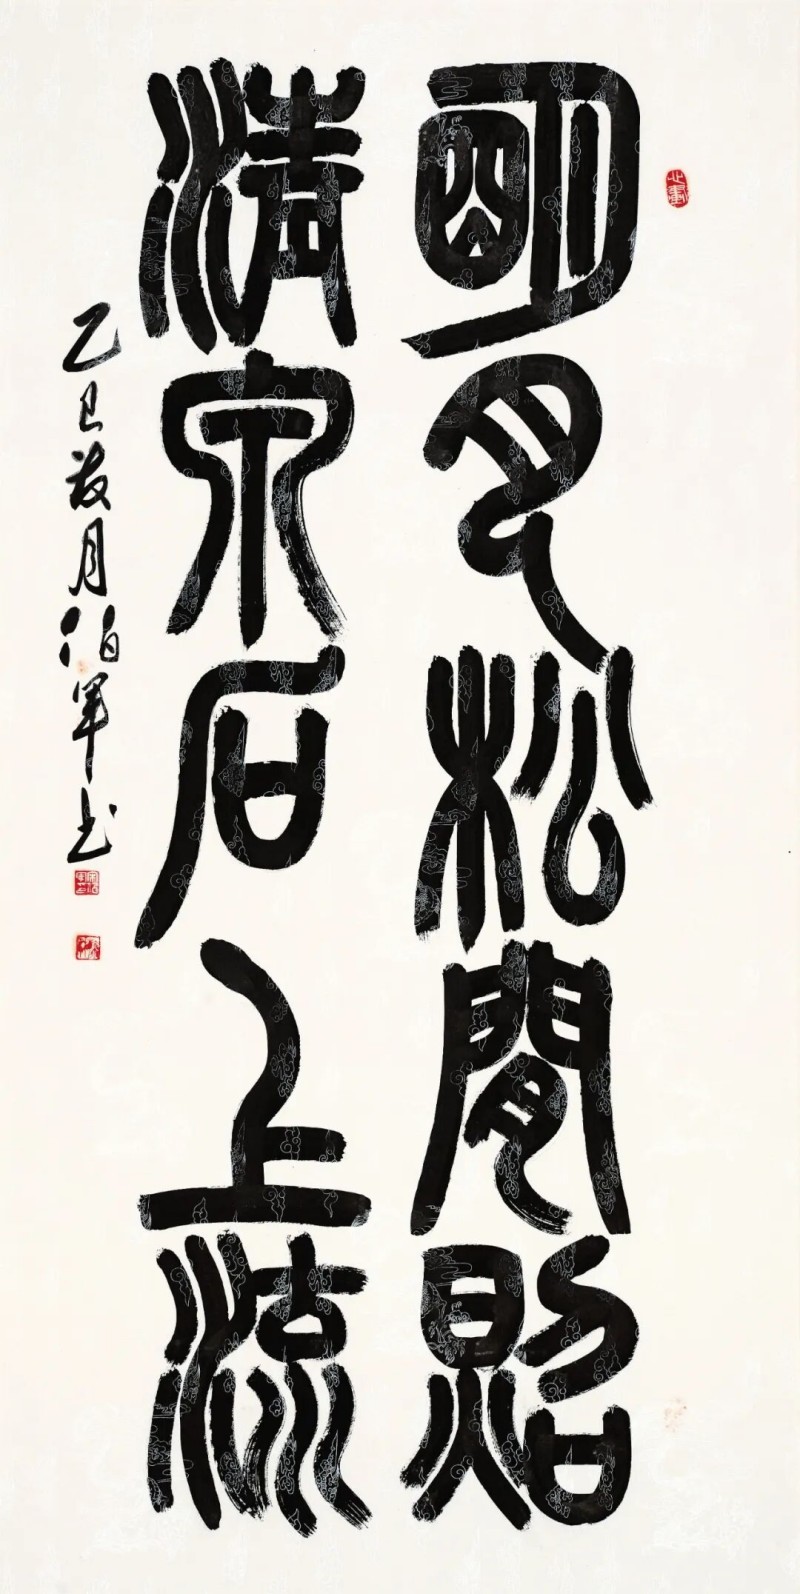 明月松間照
清泉石上流
乙巳荷月伯軍书